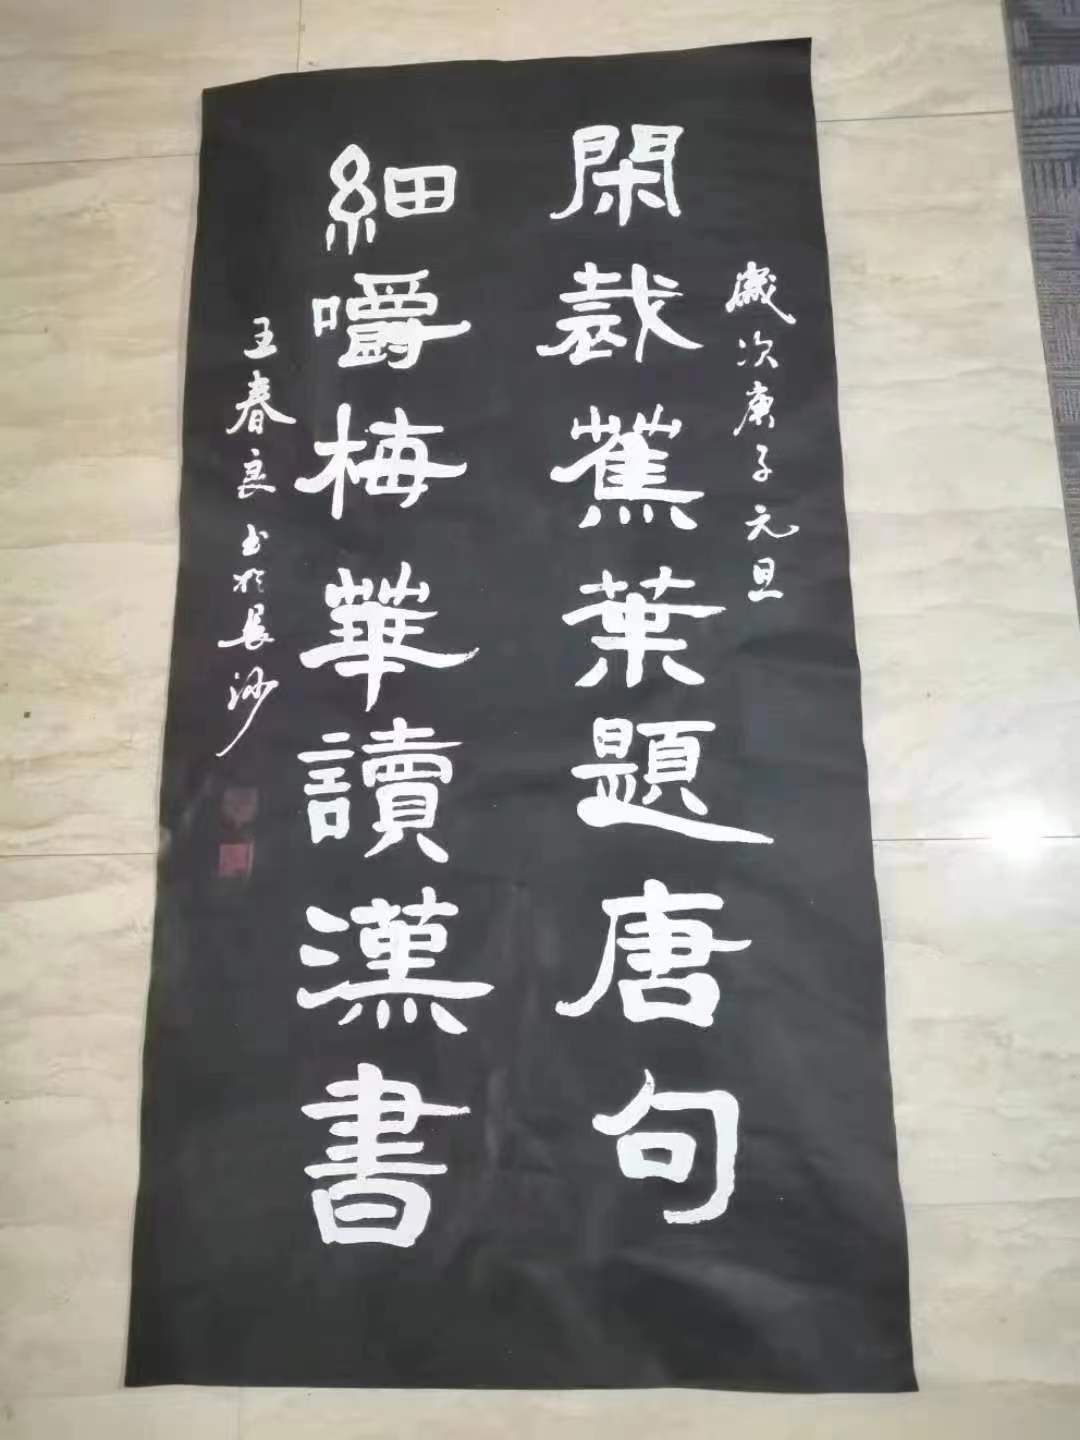 歲次庚子元旦
閑裁蕉葉題唐句
細嚼梅華讀漢書
王春良书於長沙